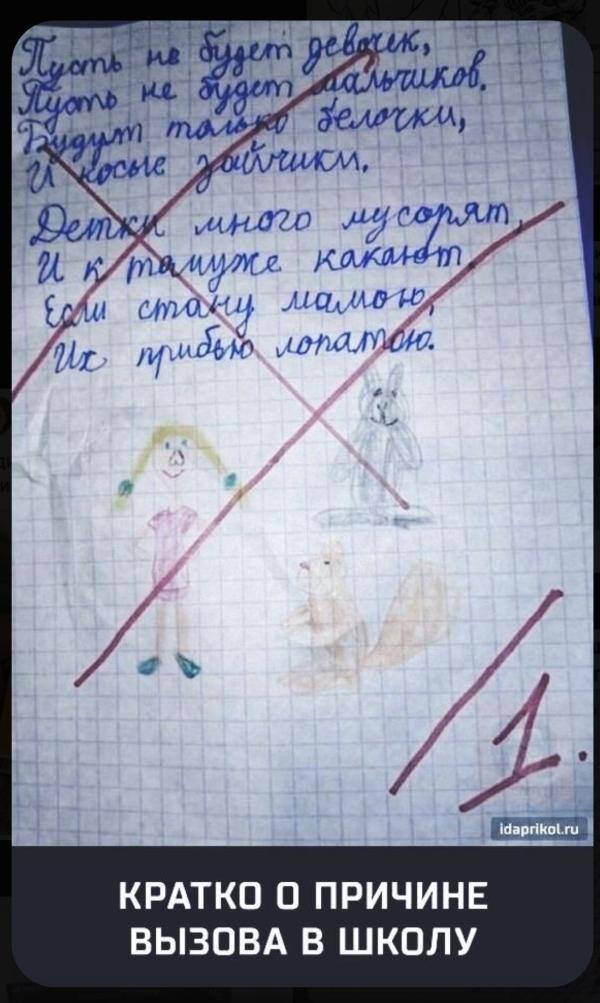 Пусть не будет девочек,
Пусть не будет мальчиков.
Будут только белочки,
И косые зайчики.
Детки много мусорят,
И к тамуже какают,
Если стану мамою,
Их прибью лопатою.
1.
idaprikol.ru
КРАТКО О ПРИЧИНЕ
ВЫЗОВА В ШКОЛУ